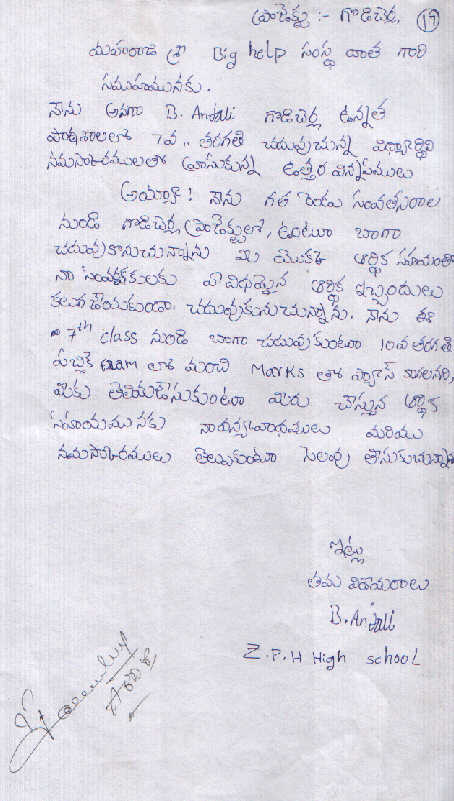 ప్రాజెక్టు :- గొడిచెర్ల. 19
మహారాజ శ్రీ Big help సంస్థ దాత గారి
సమూహమునకు.
నేను అనగా B. Anjali గొడిచెర్ల ఉన్నత
పాఠశాలలో 7వ.. తరగతి చదువుచున్న విద్యార్థిని
నమస్కారములతో వ్రాసుకున్న ఉత్తర విన్నపములు
అయ్యా! నేను గత రెండు సంవత్సరాల
నుండి గొడిచెర్ల ప్రాజెక్టులో, ఉంటూ బాగా
చదువుకొనుచున్నాను మీ యొక్క ఆర్థిక సహాయంతో
నా సంరక్షకులకు ఏ విధమైన ఆర్థిక ఇబ్బందులు
కలుగచేయకుండా చదువుకునుచున్నాను. నేను ఈ
7th class నుండి బాగా చదువుకుంటూ 10వ తరగతి
పబ్లిక్ exam లో మంచి Marks తో ప్యాస్ కాగలనని,
మీకు తెలియజేసుకుంటూ మీరు చేస్తున్న ఆర్థిక
సహాయమునకు నా ధన్యవాదములు మరియు
నమస్కారములు తెలుపుకుంటూ సెలవు తీసుకుచున్నాను
ఇట్లు
తమ విధేయురాలు
B. Anjali
Z.P.H High school